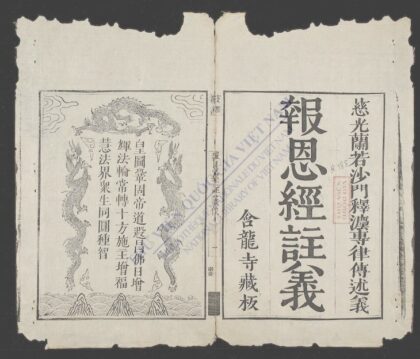 慈光蘭若沙門釋灋專律傳述義
報恩經註義
含龍寺藏板
皇圖鞏固帝道遐昌佛日增
輝法輪常轉十方施主增福
慧法界衆生同圓種智
THƯ VIỆN QUỐC GIA VIỆT NAM
NATIONAL LIBRARY OF VIETNAM